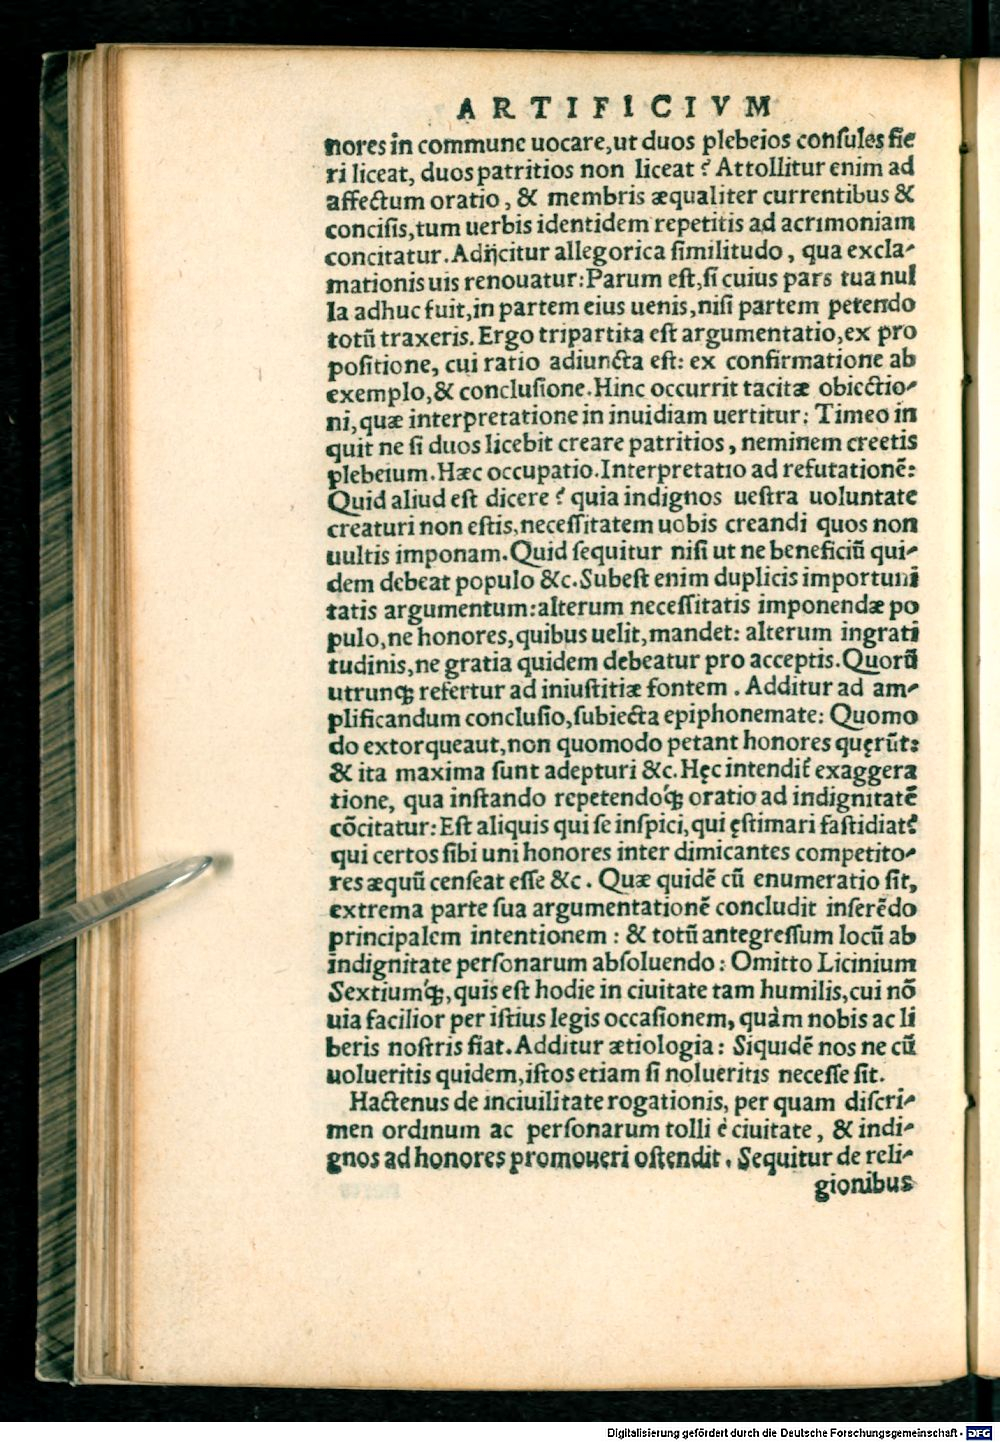 ARTIFICIVM
nores in commune uocare, ut duos plebeios conſules fie
ri liceat, duos patritios non liceat? Attollitur enim ad
affectum oratio, & membris æqualiter currentibus &
conciſis, tum uerbis identidem repetitis ad acrimoniam
concitatur. Adijcitur allegorica ſimilitudo, qua excla-
mationis uis renouatur: Parum eſt, ſi cuius pars tua nul
la adhuc fuit, in partem eius uenis, niſi partem petendo
totũ traxeris. Ergo tripartita eſt argumentatio, ex pro
poſitione, cui ratio adiuncta eſt: ex confirmatione ab
exemplo, & concluſione. Hinc occurrit tacitæ obiectio-
ni, quæ interpretatione in inuidiam uertitur: Timeo in
quit ne ſi duos licebit creare patritios, neminem creetis
plebeium. Hæc occupatio. Interpretatio ad refutationẽ:
Quid aliud eſt dicere? quia indignos ueſtra uoluntate
creaturi non eſtis, neceſſitatem uobis creandi quos non
uultis imponam. Quid ſequitur niſi ut ne beneficiũ qui-
dem debeat populo &c. Subeſt enim duplicis importuni
tatis argumentum: alterum neceſſitatis imponendæ po
pulo, ne honores, quibus uelit, mandet: alterum ingrati
tudinis, ne gratia quidem debeatur pro acceptis. Quorũ
utrunqꝫ refertur ad iniuſtitiæ fontem. Additur ad am-
plificandum concluſio, ſubiecta epiphonemate: Quomo
do extorqueaut, non quomodo petant honores quęrũt:
& ita maxima ſunt adepturi &c. Hęc intendit᷑ exaggera
tione, qua inſtando repetendo´qꝫ oratio ad indignitatẽ
cõcitatur: Eſt aliquis qui ſe inſpici, qui ęſtimari faſtidiat?
qui certos ſibi uni honores inter dimicantes competito-
res æquũ cenſeat eſſe &c. Quæ quidẽ cũ enumeratio ſit,
extrema parte ſua argumentationẽ concludit inſerẽdo
principalem intentionem: & totũ antegreſſum locũ ab
indignitate perſonarum abſoluendo: Omitto Licinium
Sextium´qꝫ, quis eſt hodie in ciuitate tam humilis, cui nõ
uia facilior per iſtius legis occaſionem, quàm nobis ac li
beris noſtris fiat. Additur ætiologia: Siquidẽ nos ne cũ
uolueritis quidem, iſtos etiam ſi nolueritis neceſſe ſit.
Hactenus de inciuilitate rogationis, per quam diſcri-
men ordinum ac perſonarum tolli è ciuitate, & indi-
gnos ad honores promoueri oſtendit. Sequitur de reli-
gionibus
Digitalisierung gefördert durch die Deutsche Forschungsgemeinschaft - DFG